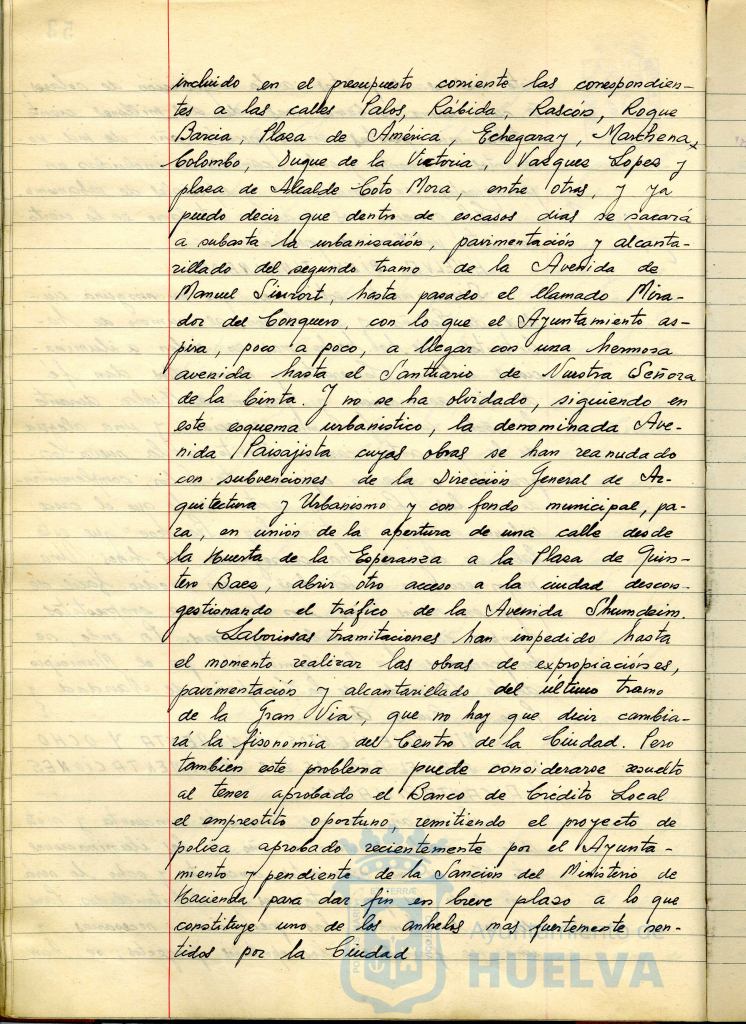 incluido en el presupuesto corriente las correspondien-
tes a las calles Palos, Rábida, Rascón, Roque
Barcia, Plaza de América, Echegaray, Marchena
Colombo, Duque de la Victoria, Vazques Lopes y
plaza de Alcalde Coto Mora, entre otras, y ya
puedo decir que dentro de escasos dias se sacará
a subasta la urbanización, pavimentación y alcanta-
rillado del segundo tramo de la Avenida de
Manuel Siurrort, hasta pasado el llamado Mira-
dor del Conquero, con lo que el Ayuntamiento as-
pira, poco a poco, a llegar con una hermosa
avenida hasta el Santuario de Nuestra Señora
de la Cinta. Y no se ha olvidado, siguiendo en
este esquema urbanistico, la denominada Ave-
nida Paisajista cuyas obras se han reanudado
con subvenciones de la Dirección General de Ar-
quitectura y Urbanismo y con fondo municipal, pa-
ra, en unión de la apertura de una calle desde
la Huerta de la Esperanza a la Plaza de Quin-
tero Baez, abrir otro acceso a la ciudad descon-
gestionando el tráfico de la Avenida Shumdeim.
Laboriosas tramitaciones han impedido hasta
el momento realizar las obras de expropiaciónes,
pavimentación y alcantarillado del último tramo
de la Gran Via, que no hay que decir cambia-
rá la fisonomia del Centro de la Ciudad. Pero
tambien este problema puede considerarse resuelto
al tener aprobado el Banco de Crédito Local
el emprestito oportuno, remitiendo el proyecto de
poliza aprobado recientemente por el Ayunta-
miento y pendiente de la Sanción del Ministerio de
Hacienda para dar fin en breve plazo a lo que
constituye uno de los anhelos mas fuertemente sen-
tidos por la Ciudad
Ayuntamiento de
HUELVA